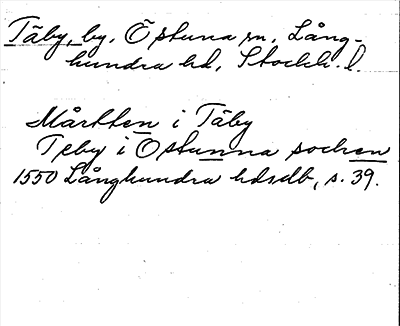 Täby, by. Östuna sn. Lång-
hundra hd, Stockh. l.
Mårtten i Täby
Teby i Ostunna sochen
1550 Långhundra hdsdb, s. 39.